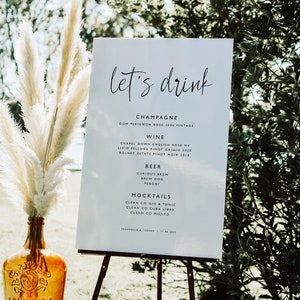 let's drink
CHAMPAGNE
DOM PERIGNON ROSE 2006 VINTAGE
WINE
CHAPEL DOWN ENGLISH ROSE NV
LIVIO FELLUGA PINOT GRIGIO 2020
BOLNEY ESTATE PINOT NOIR 2018
BEER
CURIOUS BREW
BREW DOG
PERONI
MOCKTAILS
CLEAN CO GIN & TONIC
CLEAN CO CUBA LIBRE
CLEAN CO MOJITO